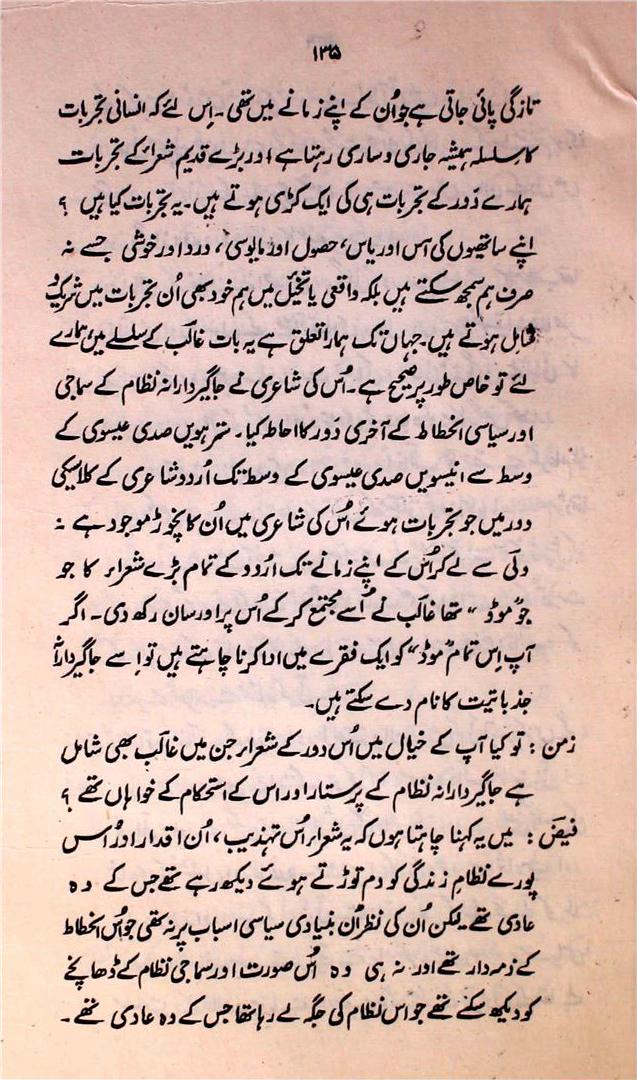 ۱۳۵
تازگی پائی جاتی ہے جو اُن کے اپنے زمانے میں تھی۔ اِس لئے کہ انسانی تجربات
کا سلسلہ ہمیشہ جاری و ساری رہتا ہے اور بڑے قدیم شعراء کے تجربات
ہمارے دَور کے تجربات ہی کی ایک کڑی ہوتے ہیں۔ یہ تجربات کیا ہیں ؟
اپنے ساتھیوں کی آس اور یاس، حصول اور مایوسی، درد اور خوشی جسے نہ
صرف ہم سمجھ سکتے ہیں بلکہ واقعی یا تخیّل میں ہم خود بھی اُن تجربات میں شریک و
شامل ہوتے ہیں۔ جہاں تک ہمارا تعلق ہے یہ بات غالبؔ کے سلسلے میں ہمارے
لئے تو خاص طور پر صحیح ہے۔ اُس کی شاعری نے جاگیردارانہ نظام کے سماجی
اور سیاسی انحطاط کے آخری دَور کا احاطہ کیا۔ سترہویں صدی عیسوی کے
وسط سے انیسویں صدی عیسوی کے وسط تک اُردو شاعری کے کلاسیکی
دور میں جو تجربات ہوئے اُس کی شاعری میں اُن کا نچوڑ موجود ہے نہ
ولی سے لے کر اُس کے اپنے زمانے تک اردو کے تمام بڑے شعراء کا جو
جو موڈ" تھا غالب نے اُسے مجتمع کر کے اُس پر اور سان رکھ دی۔ اگر
آپ اِس تمام "موڈ" کو ایک فقرے میں ادا کرنا چاہتے ہیں تو اِسے جاگیردارانہ
جذباتیت کا نام دے سکتے ہیں۔
زمن : تو کیا آپ کے خیال میں اُس دور کے شعراء جن میں غالب بھی شامل
ہے جاگیردارانہ نظام کے پرستار اور اس کے استحکام کے خواہاں تھے ؟
فیضؔ : میں یہ کہنا چاہتا ہوں کہ یہ شعراء اُس تہذیب، اُن اقدار اور اُس
پورے نظامِ زندگی کو دم توڑتے ہوئے دیکھ رہے تھے جس کے وہ
عادی تھے لیکن اُن کی نظر اُن بنیادی سیاسی اسباب پر نہ تھی جو اُس انحطاط
کے ذمہ دار تھے اور نہ ہی وہ اُس صورت اور سماجی نظام کے ڈھانچے
کو دیکھ سکتے تھے جو اس نظام کی جگہ لے رہا تھا جس کے وہ عادی تھے۔